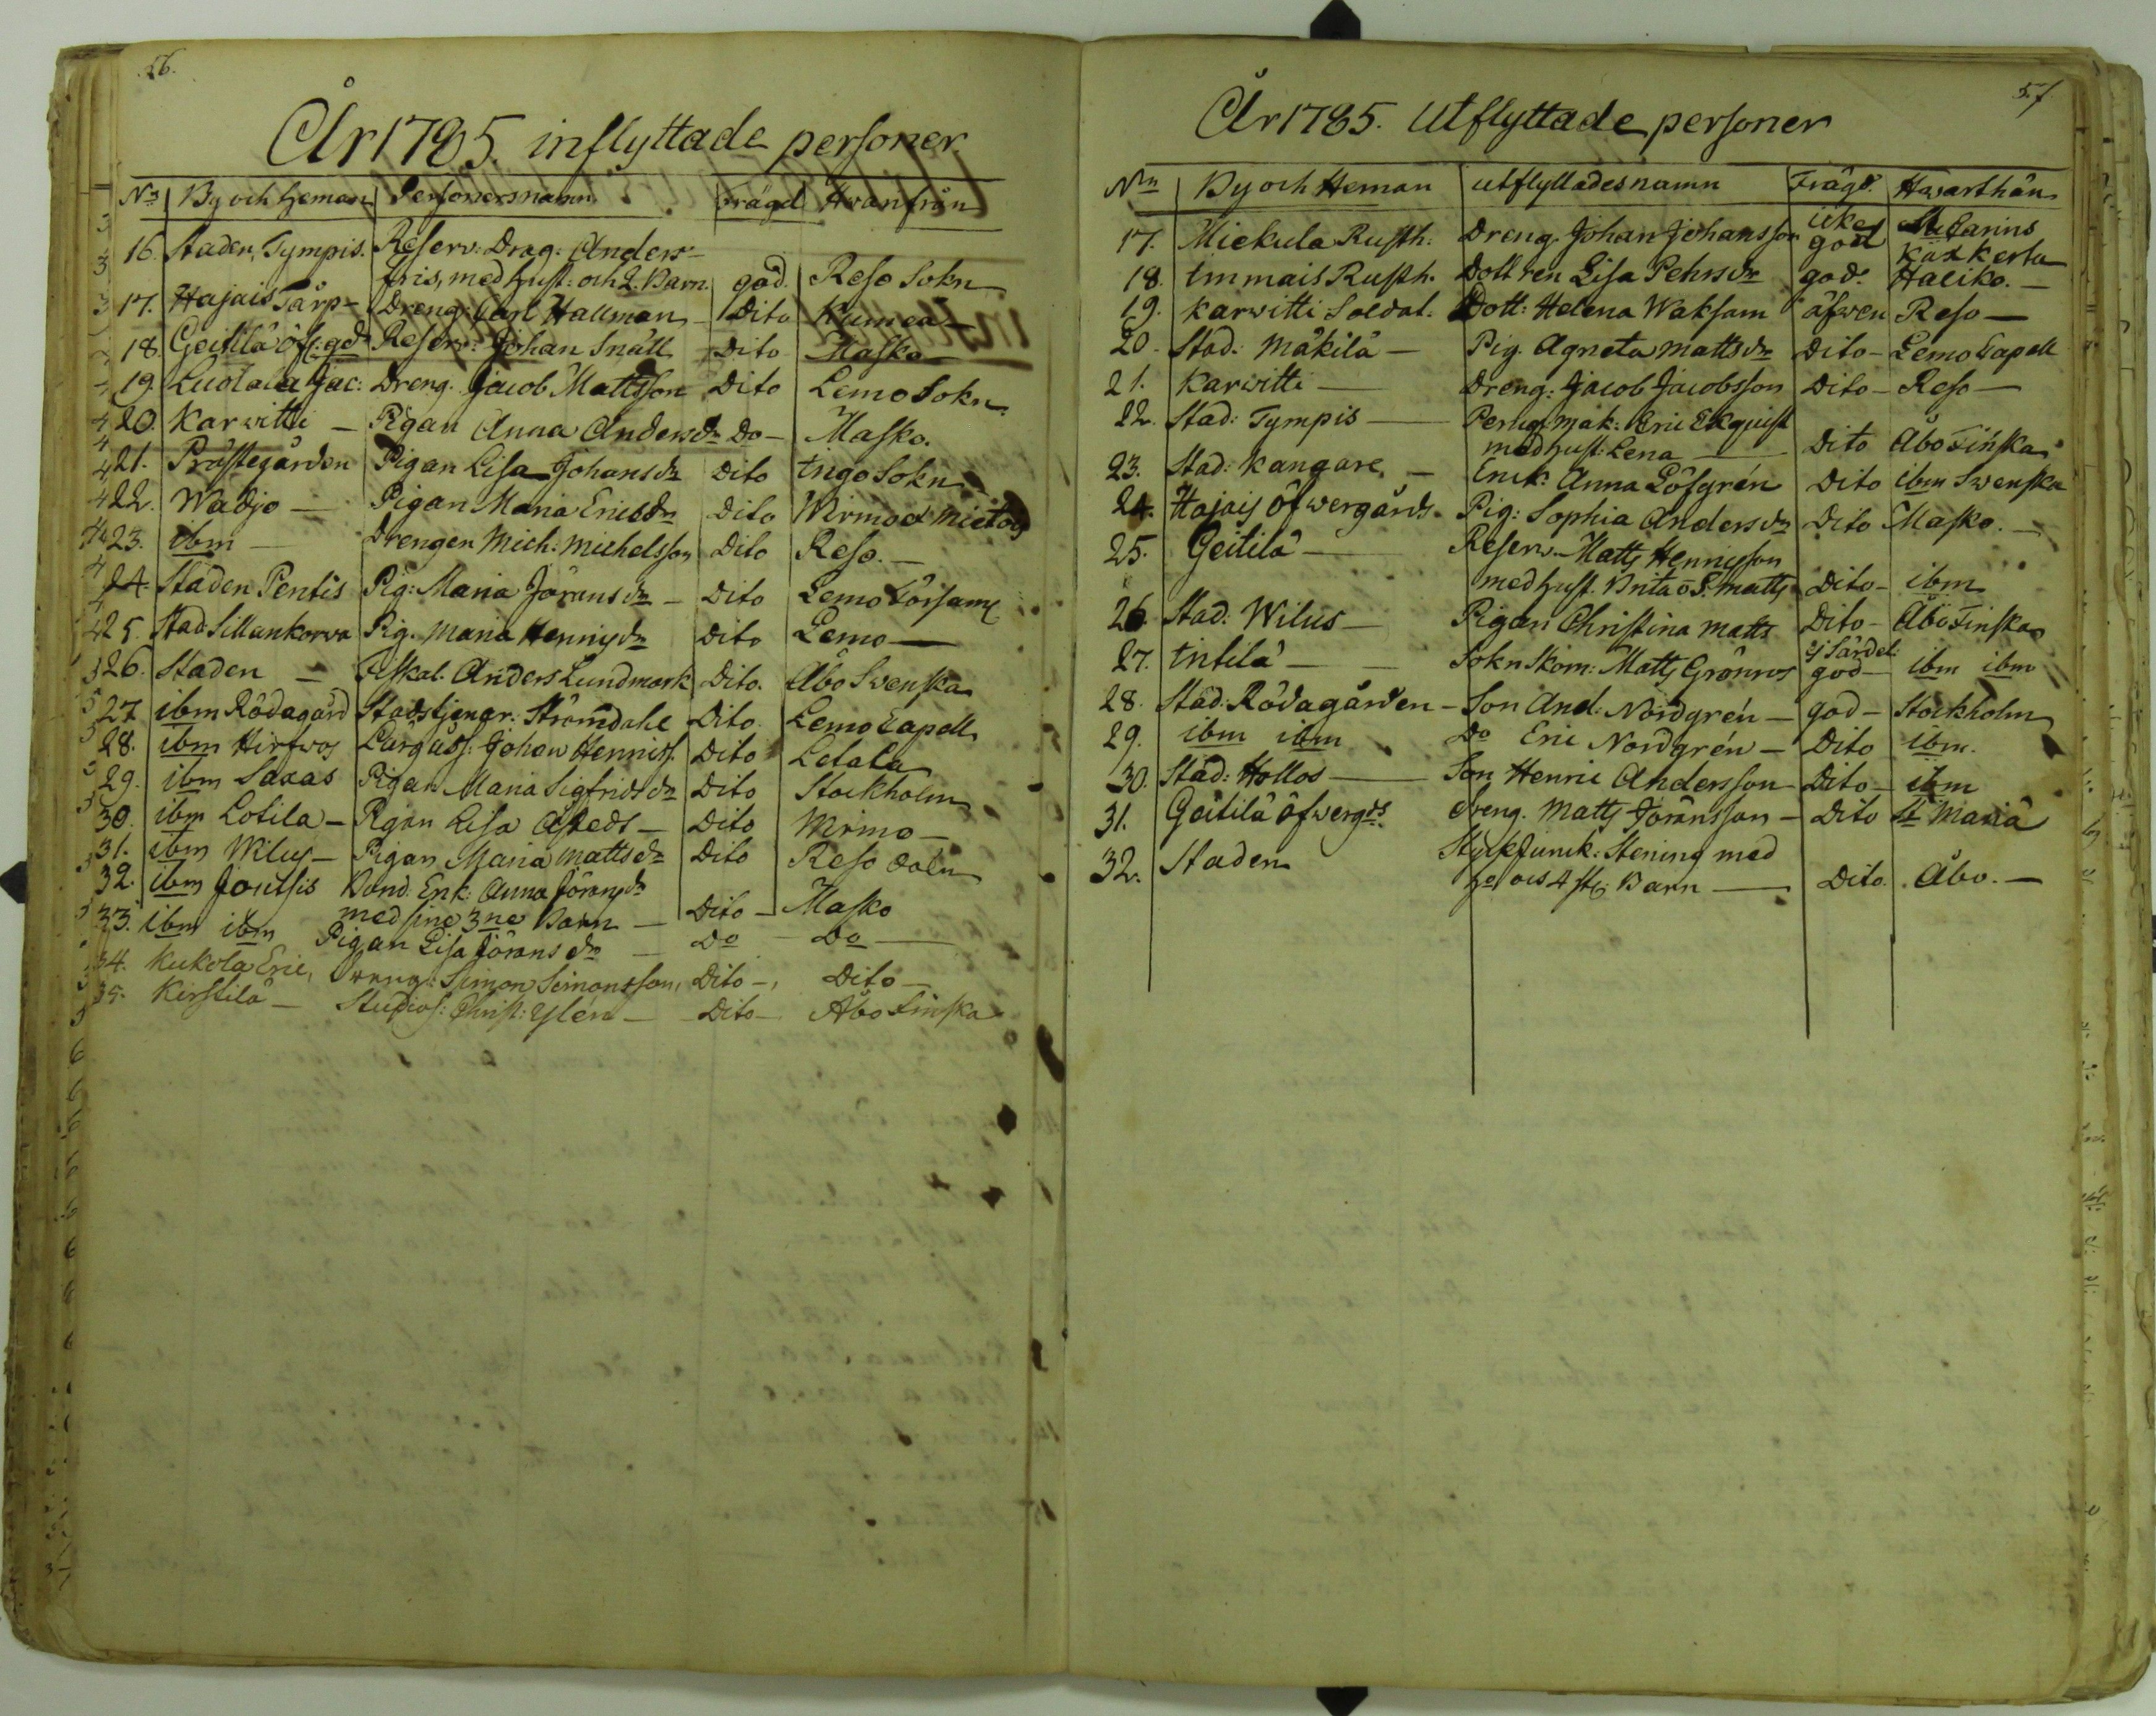 56.
År 1785. inflyttade personer
No By och Heman Personersnamn Frägd Hvanfrån
16. Staden, Tympis. Reserv: Drag: Anders
fris, med hust: och 2. Barn. god. Reso Sokn
17. Hajais Tårp- Dreng: Carl Hallman Dito Kumea
18. Geitilä öfv:gd Reserv: Johan Snäll Dito Masko
19. Luolala Jac: Dreng. Jacob Mattsson Dito Lemo Sokn
20. Karvitti - Pigan Anna Andersdr Do - Masko.
21. Prästegården Pigan Lisa Johansdr Dito Ingo Sokn
22. Wadjo - Pigan Maria Ericsdr Dito Wirmo et Mietois
23. ibm - Drengen Mich: Michelsson Dito Reso. -
24. Staden Pentis Pig: Maria Jöransdr - Dito Lemo Församl
25. Stad Sillankorva Pig. Maria Hennigsdr Dito Lemo -
26. Staden - Fiskal. Anders Lundmark Dito. Åbo Svenska
27. ibm Rödagård Stadstjenar. Strömdahl Dito Lemo Capell
28. ibm Hirfvos Johan Henriss. Dito Letala
29. ibm Saxas Pigan Maria Sigfridsdr Dito Stockholm
30. ibm Lotila - Pigan Lisa Åstedt - Dito Wirmo -
31. ibm Wilus - Pigan Maria Mattsdr Dito Reso
32. ibm Joutsis Bond. Enk: Anna Jöransdr
med sine 3ne Barn - Dito - Masko
33. ibm ibm Pigan Lisa Jöransdr - Do - Do -
34. Kukola Eric, Dreng: Simon Simonsson, Dito -, Dito -
35. Kirstilä - Studios: Christ: Ylén - Dito - Åbo Finska
57.
År 1785. Utflyttade personer
Nrn By och Heman utflyttades namn Frägd. Hvarthän
17. Miekula Rusth: Dreng. Johan Johansson icke god St Carins Kaxkerta
18. Immais Rusth. Dottren Lisa Pehrsdr god. Haliko. -
19. Karvitti Soldat. Dott: Helena Waksam äfven Reso -
20. Stad. Mäkilä - Pig. Agneta Mattsdr Dito - Lemo Capell
21. Karvitti - Dreng: Jacob Jacobsson Dito - Reso -
22. Stad: Tympis - Perug. Mak: Eric Ekquist
med hust: Lena - Dito Åbo Finska
23. Stad: Kangare - Enk: Anna Löfgrén Dito ibm Svenska
24. Hajais öfvergårds. Pig: Sophia Andersdr Dito Masko. -
25. Geitilä - Reserv. Matts Hennigsson
med hust. Brita o S. Matts Dito - ibm
26 Stad: Wilus - Pigan Christina Matts Dito - Åbo Finska
27. Intilä - - Sokn Skom: Matts Grönros ej särdel: god - ibm ibm
28. Stad: Rödagården - Son And: Nordgrén - god - Stockholm
29. ibm ibm Do Eric Nordgrén - Dito ibm.
30. Stad: Hollos - Son Henric Andersson - Dito - ibm
31. Geitilä öfvergds. Dreng. Matts Jöransson - Dito St Mariä
32. Staden Stykjunk: Stening med
he ocs 4 st: Barn - Dito. Åbo. -